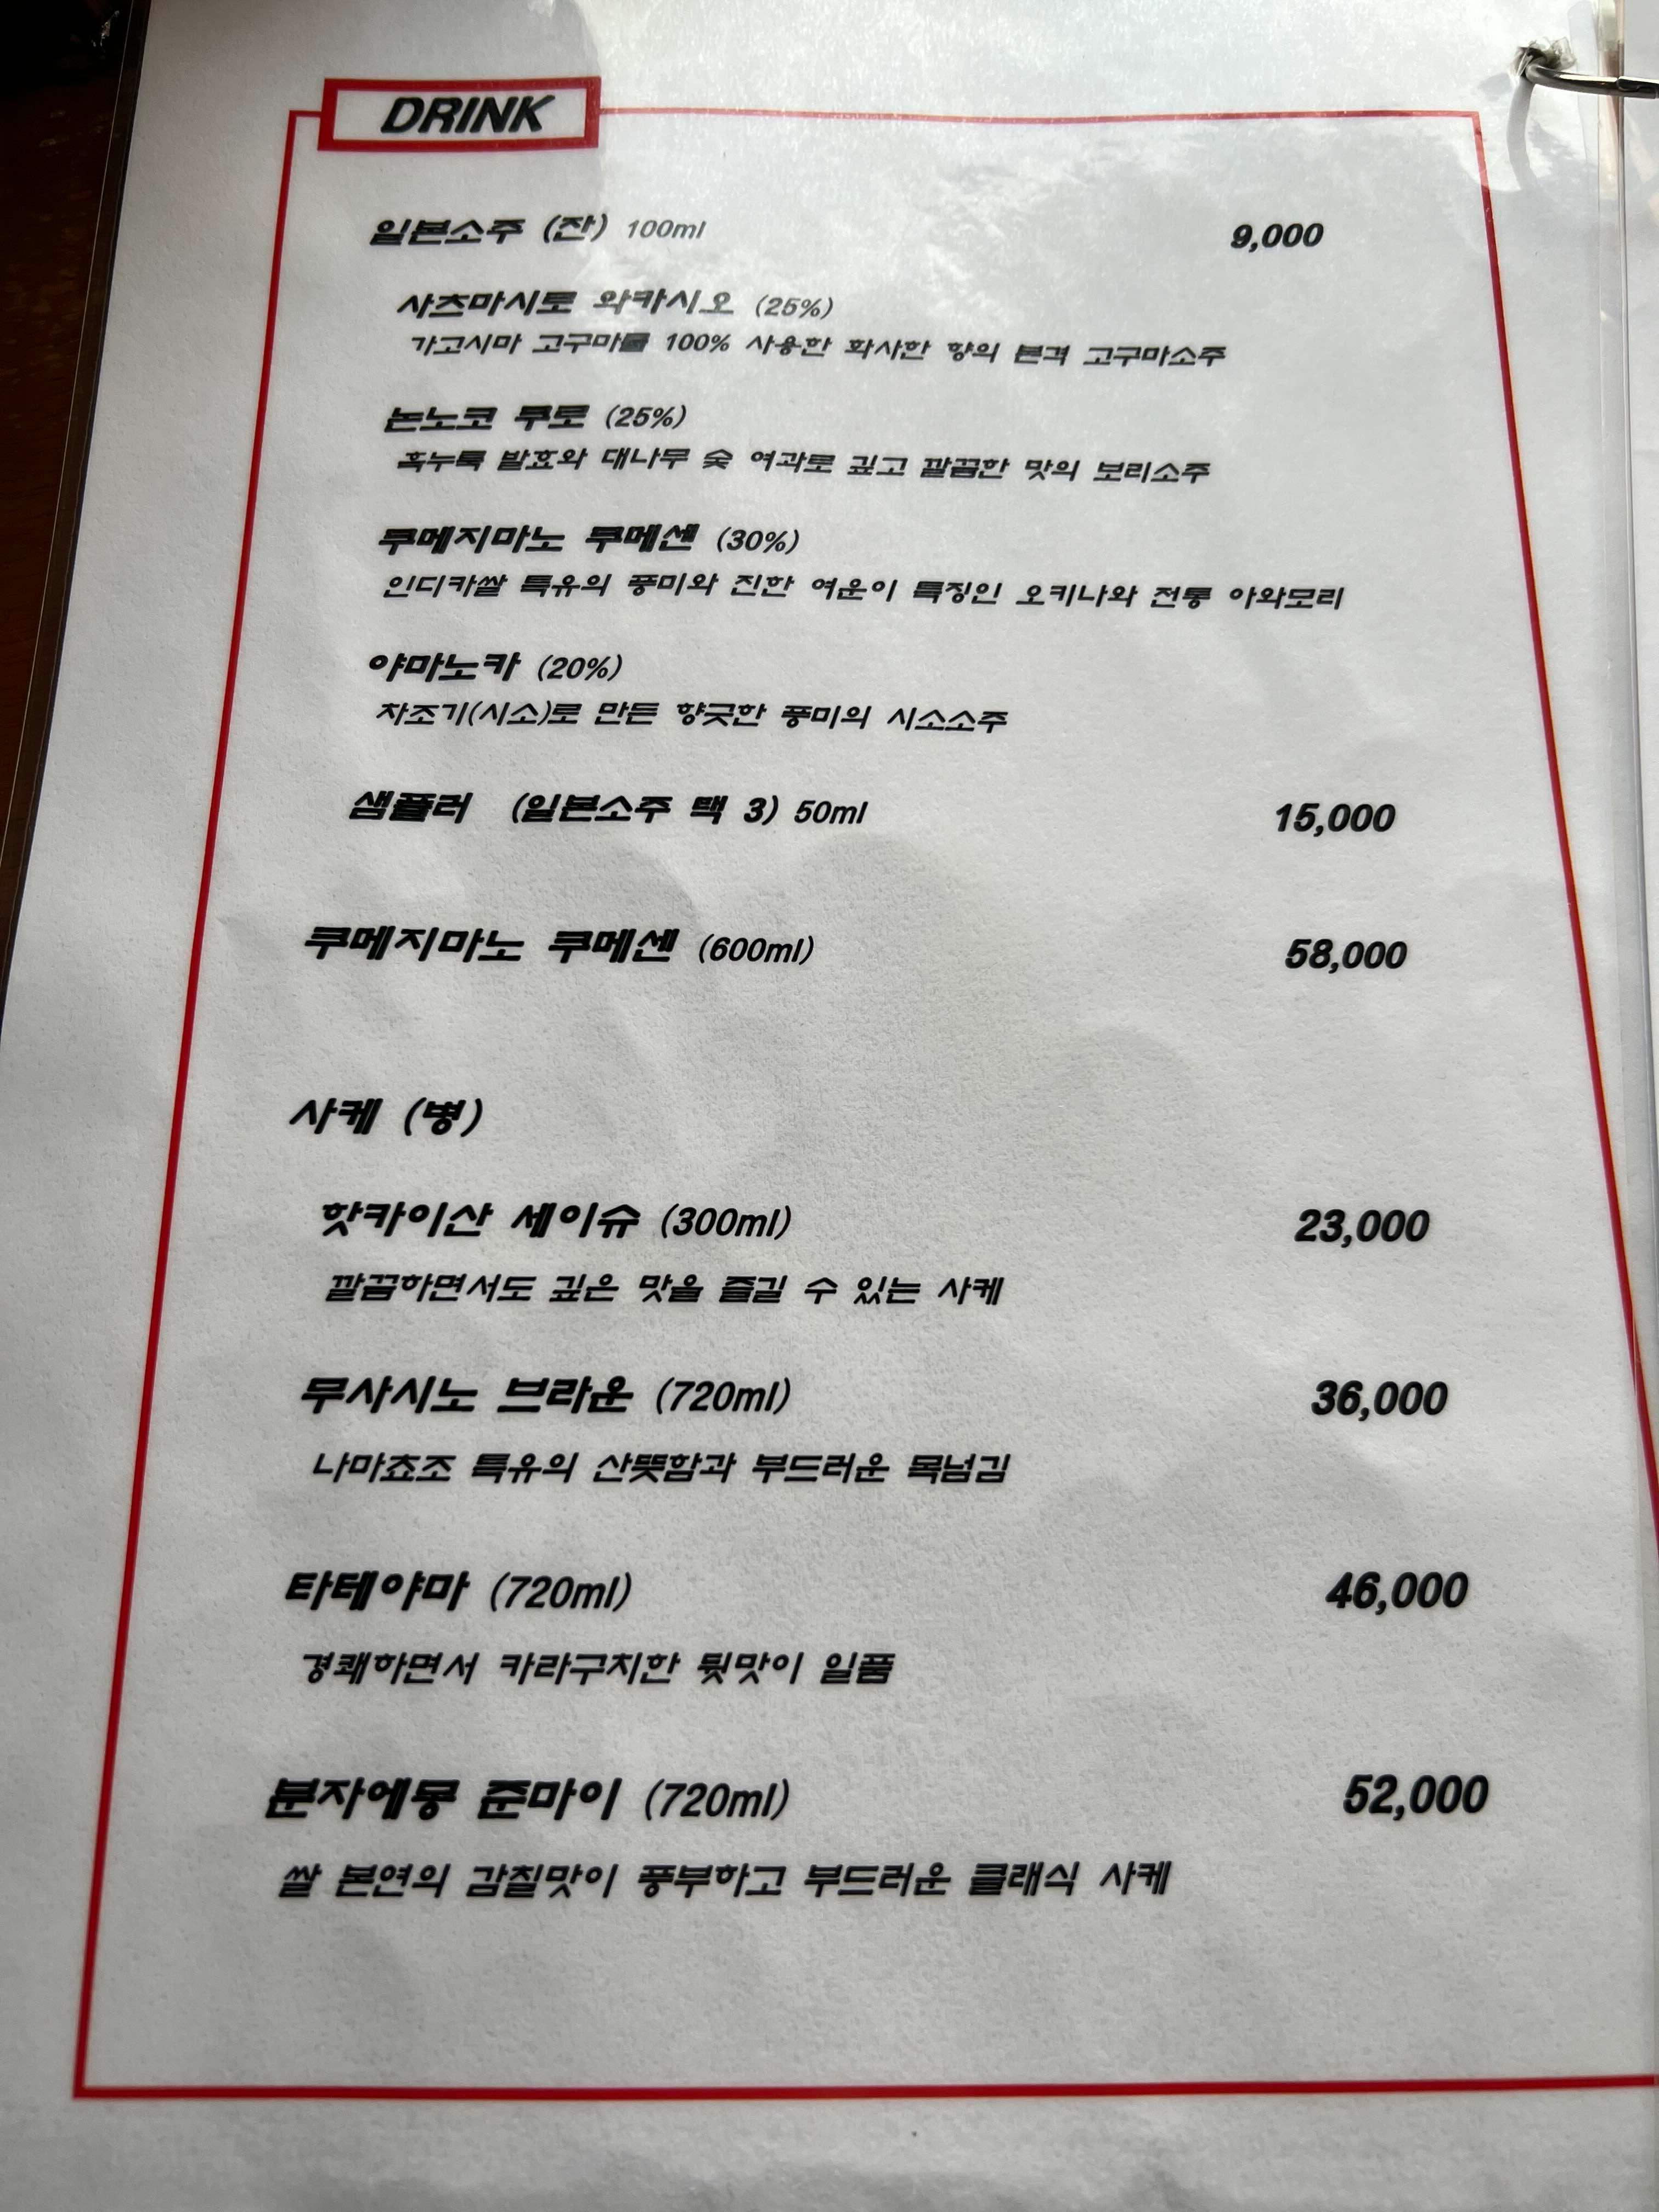 DRINK
일본소주 (잔) 100ml 9,000
사츠마시로 와카시오 (25%)
가고시마 고구마를 100% 사용한 화사한 향의 본격 고구마소주
논노코 쿠로 (25%)
흑누룩 발효와 대나무 숯 여과로 깊고 깔끔한 맛의 보리소주
쿠메지마노 쿠메센 (30%)
인디카쌀 특유의 풍미와 진한 여운이 특징인 오키나와 전통 아와모리
야마노카 (20%)
자조기(시소)로 만든 향긋한 풍미의 시소소주
샘플러 (일본소주 택 3) 50ml 15,000
쿠메지마노 쿠메센 (600ml) 58,000
사케 (병)
핫카이산 세이슈 (300ml) 23,000
깔끔하면서도 깊은 맛을 즐길 수 있는 사케
무사시노 브라운 (720ml) 36,000
나마쵸조 특유의 산뜻함과 부드러운 목넘김
타테야마 (720ml) 46,000
경쾌하면서 카라구치한 뒷맛이 일품
분자에몽 준마이 (720ml) 52,000
쌀 본연의 감칠맛이 풍부하고 부드러운 클래식 사케